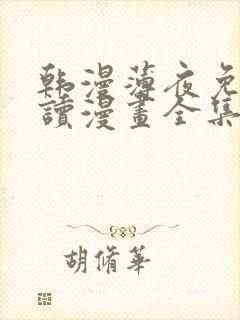 韩漫薄夜免
讀漫畫全集
胡脩華